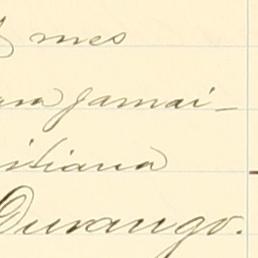 mes
para Jamai-
istiana
Durango.